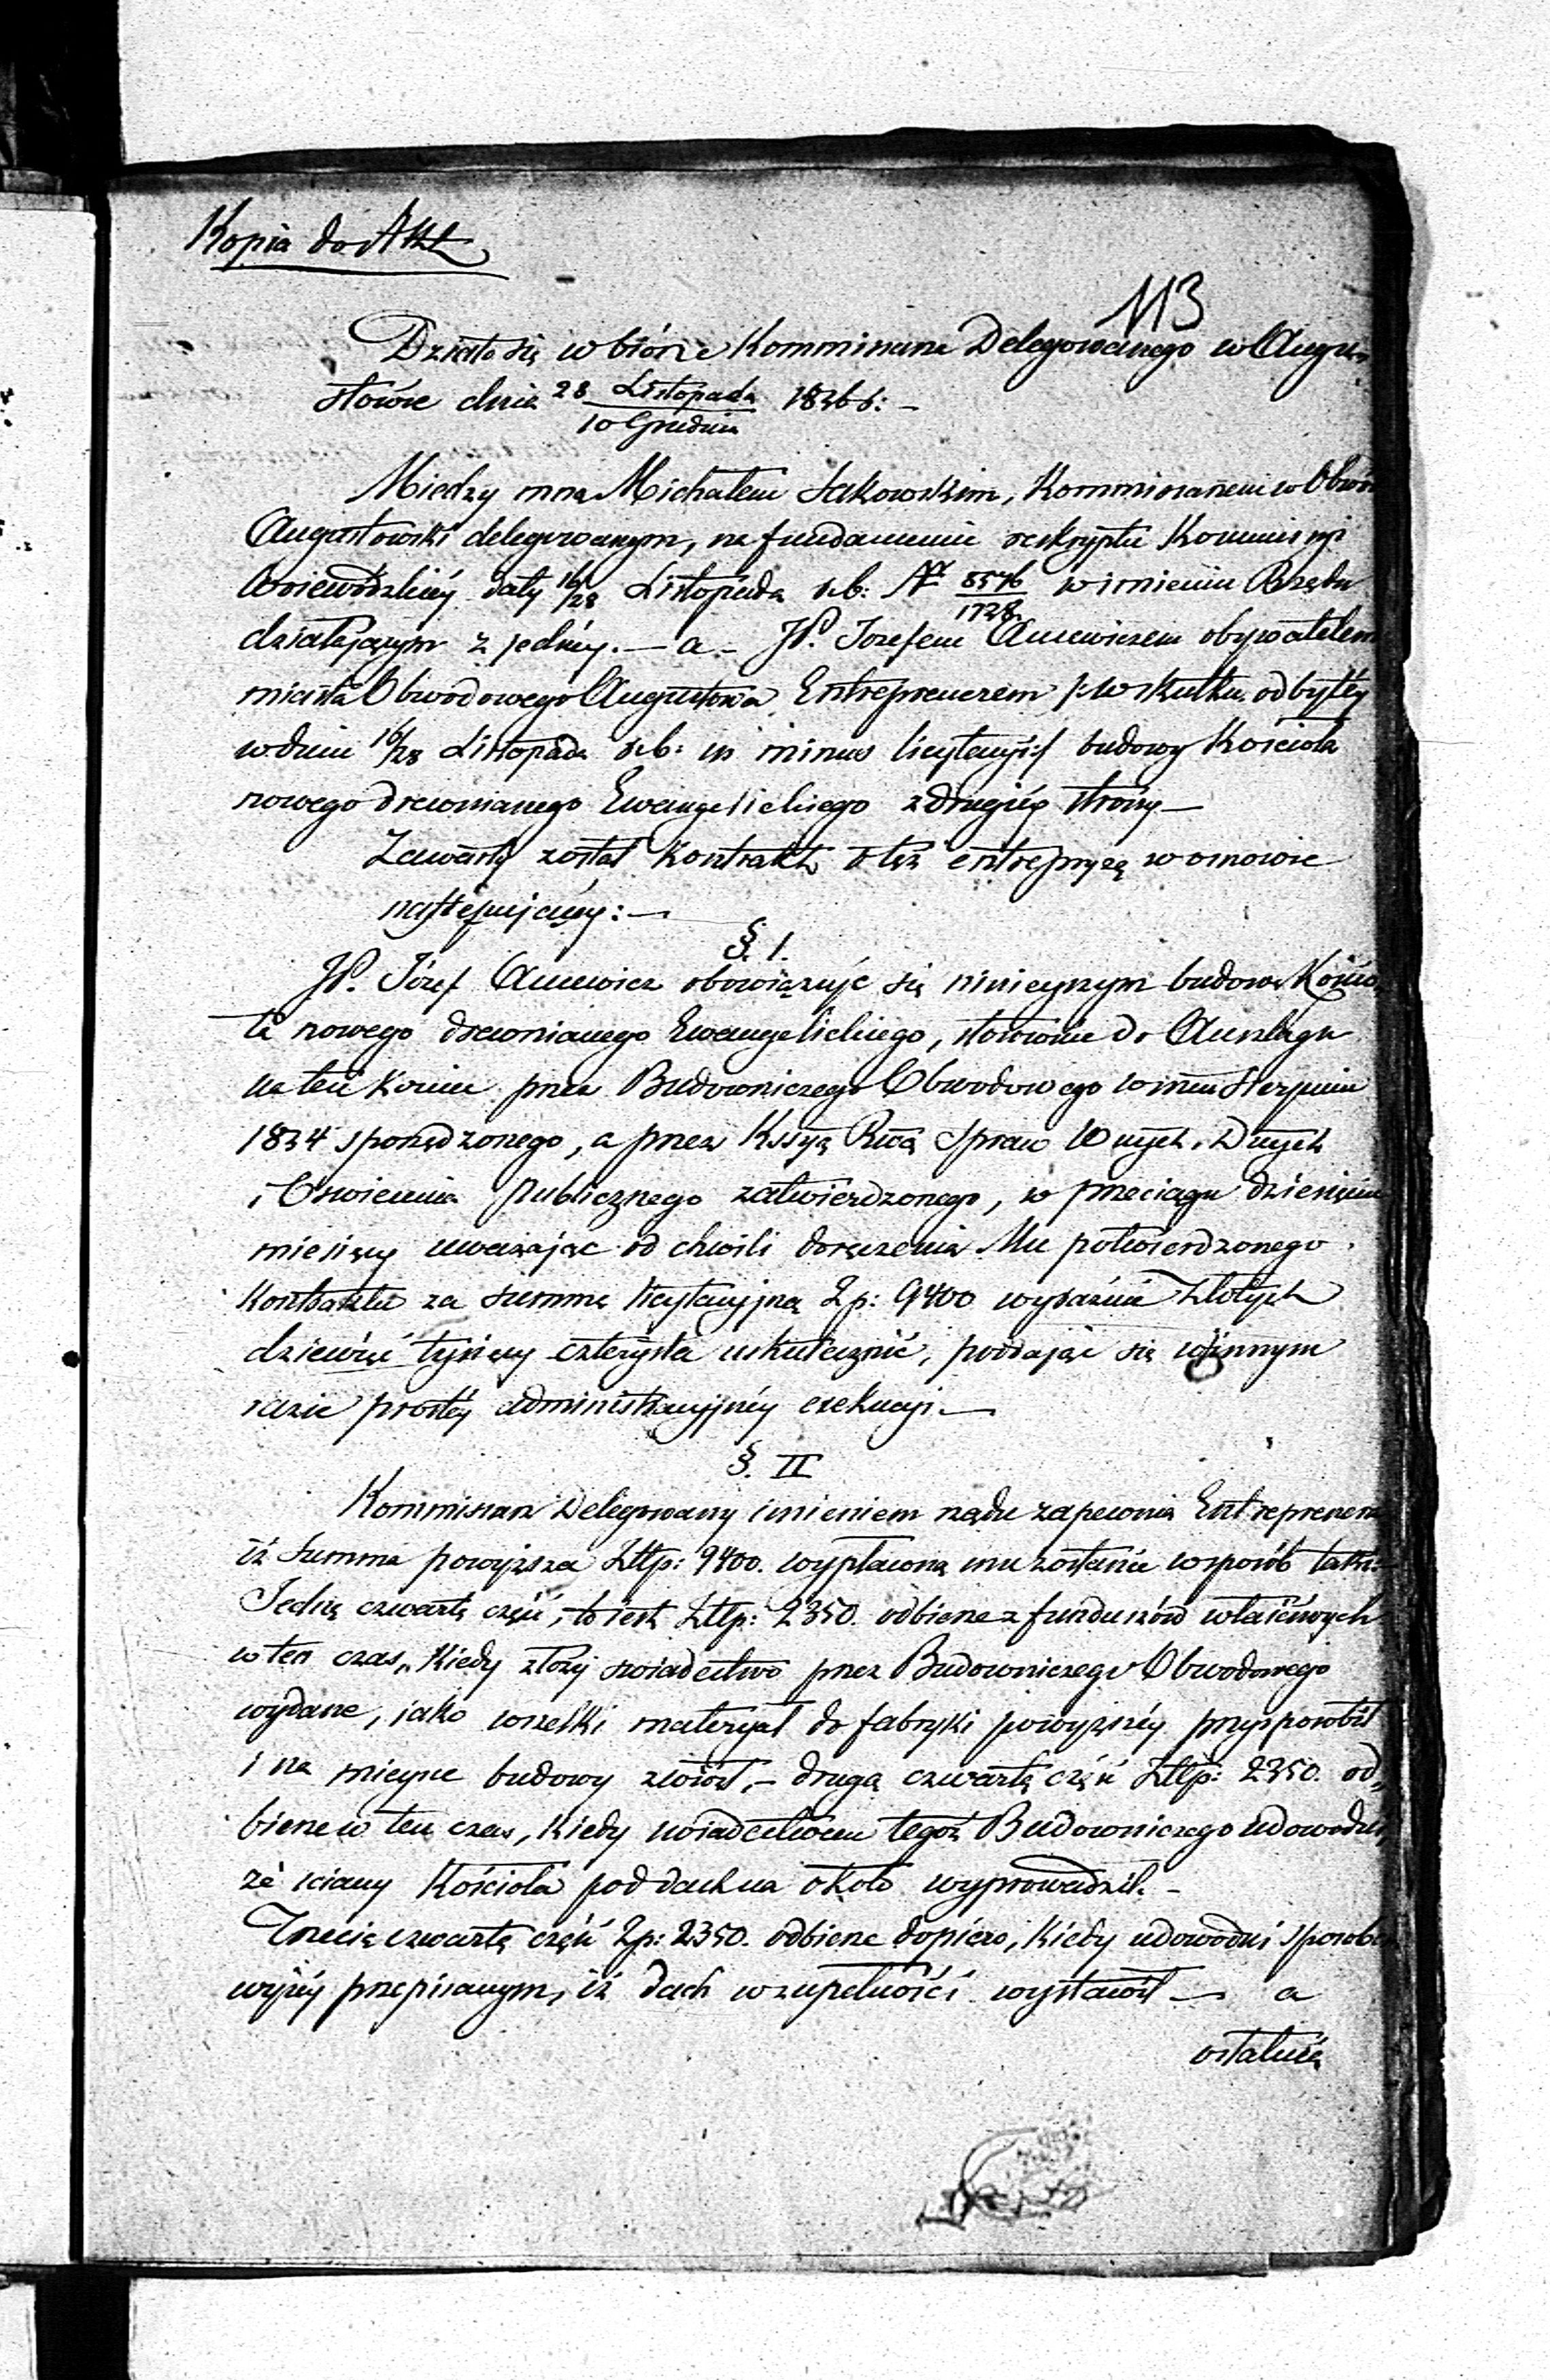 Kopia do Akt
113
Działo się w biórze Kommissarza Delegowanego w Augu-
stowie dnia 28 Listopada / 10 Grudnia 1836 r: -
Między mną Michałem Sakowskim, Kommissarzem w Obwód
Augustowski delegowanym, na fundamencie reskryptu Kommissyi
Woiewódzkiéy daty 16/28 Listopada r.b: N 8576/1728 w imieniu Rządu
działającym z jednéy. — a - JP. Jozefem Auewiczem obywatelem
miasta Obwodowego Augustowa, Entreprenerem /: w skutku odbytéy
w dniu 16/28 Listopada r.b: in minus licytacyi :/ budowy Kościoła
nowego drewnianego Ewangelickiego z drugiéy strony —
Zawarty został Kontrakt o tęż entrepryzę w osnowie
następującéy: —
§. 1.
JP. Józef Auewicz obowiązuje się ninieyszym budowę Kościo-
ła nowego drewnianego Ewangelickiego, stosownie do Anszlagu
na ten koniec przez Budowniczego Obwodowego w mcu Sierpniu
1834 sporządzonego, a przez Kssyą Rwą Spraw Wnych. Dnych
i Oswiecenia Publicznego zatwierdzonego, w przeciągu dziesięciu
miesięcy uważając od chwili doręczenia Mu potwierdzonego
Kontraktu za summę licytacyjną Zp: 9400 wyraźnie Złotych
dziewięć tysięcy czterysta uskutecznić, poddając się w innym
razie prostéy administracyjnéy exekucyi. —
§. II
Kommissarz Delegowany imieniem rządu zapewnia Entreprenera
iż Summa powyższa Złtp: 9400. wypłaconą mu zostanie w sposób taki:
Jedną czwartą część, to iest Złtp: 2350. odbierze z funduszów właściwych
w ten czas, kiedy złoży swiadectwo przez Budowniczego Obwodowego
wydane, jako wszelki materyał do fabryki powyższéy przysposobił
i na mieysce budowy zwiózł, — drugą czwartą część Złtp: 2350. od-
bierze w ten czas, kiedy swiadectwem tegoż Budowniczego udowodni,
że sciany Kościoła pod dach na około wyprowadził. -
Trzecią czwartą część Zp: 2350. odbierze dopiero, kiedy udowodni sposobem
wyżéy przepisanym, iż dach w zupełności wystawił — a
ostatnią